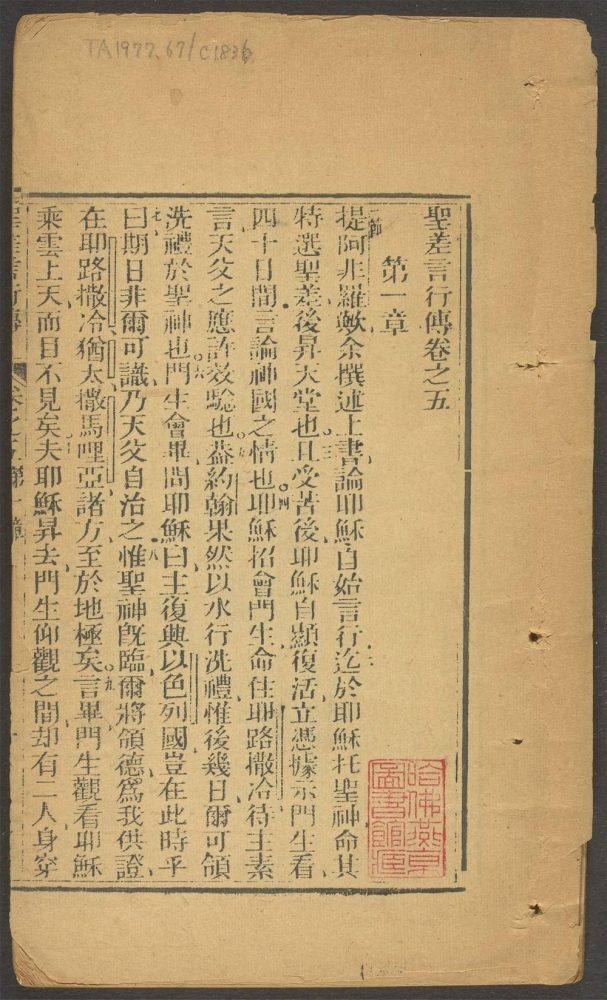 TA 1977.67/C1836
聖差言行傳卷之五
第一章
一節提阿非羅歟余撰述上書論耶穌自始言行二迄於耶穌托聖神命其
特選聖差後昇天堂也三且受苦後耶穌自顯復活立憑據示門生看
四十日間言論神國之情也四耶穌招會門生命住耶路撒冷待主素
言天父之應許效驗也五蓋約翰果然以水行洗禮惟後幾日爾可領
洗禮於聖神也六門生會畢問耶穌曰主復興以色列國豈在此時乎
七曰期日非爾可識乃天父自治之八惟聖神旣臨爾將領德爲我供證
在耶路撒冷猶太撒馬哩亞諸方至於地極矣九言畢門生觀看耶穌
乘雲上天而目不見矣夫耶穌昇去門生仰觀之間却有二人身穿
聖差言行傳 第一章
哈佛燕京圖書館